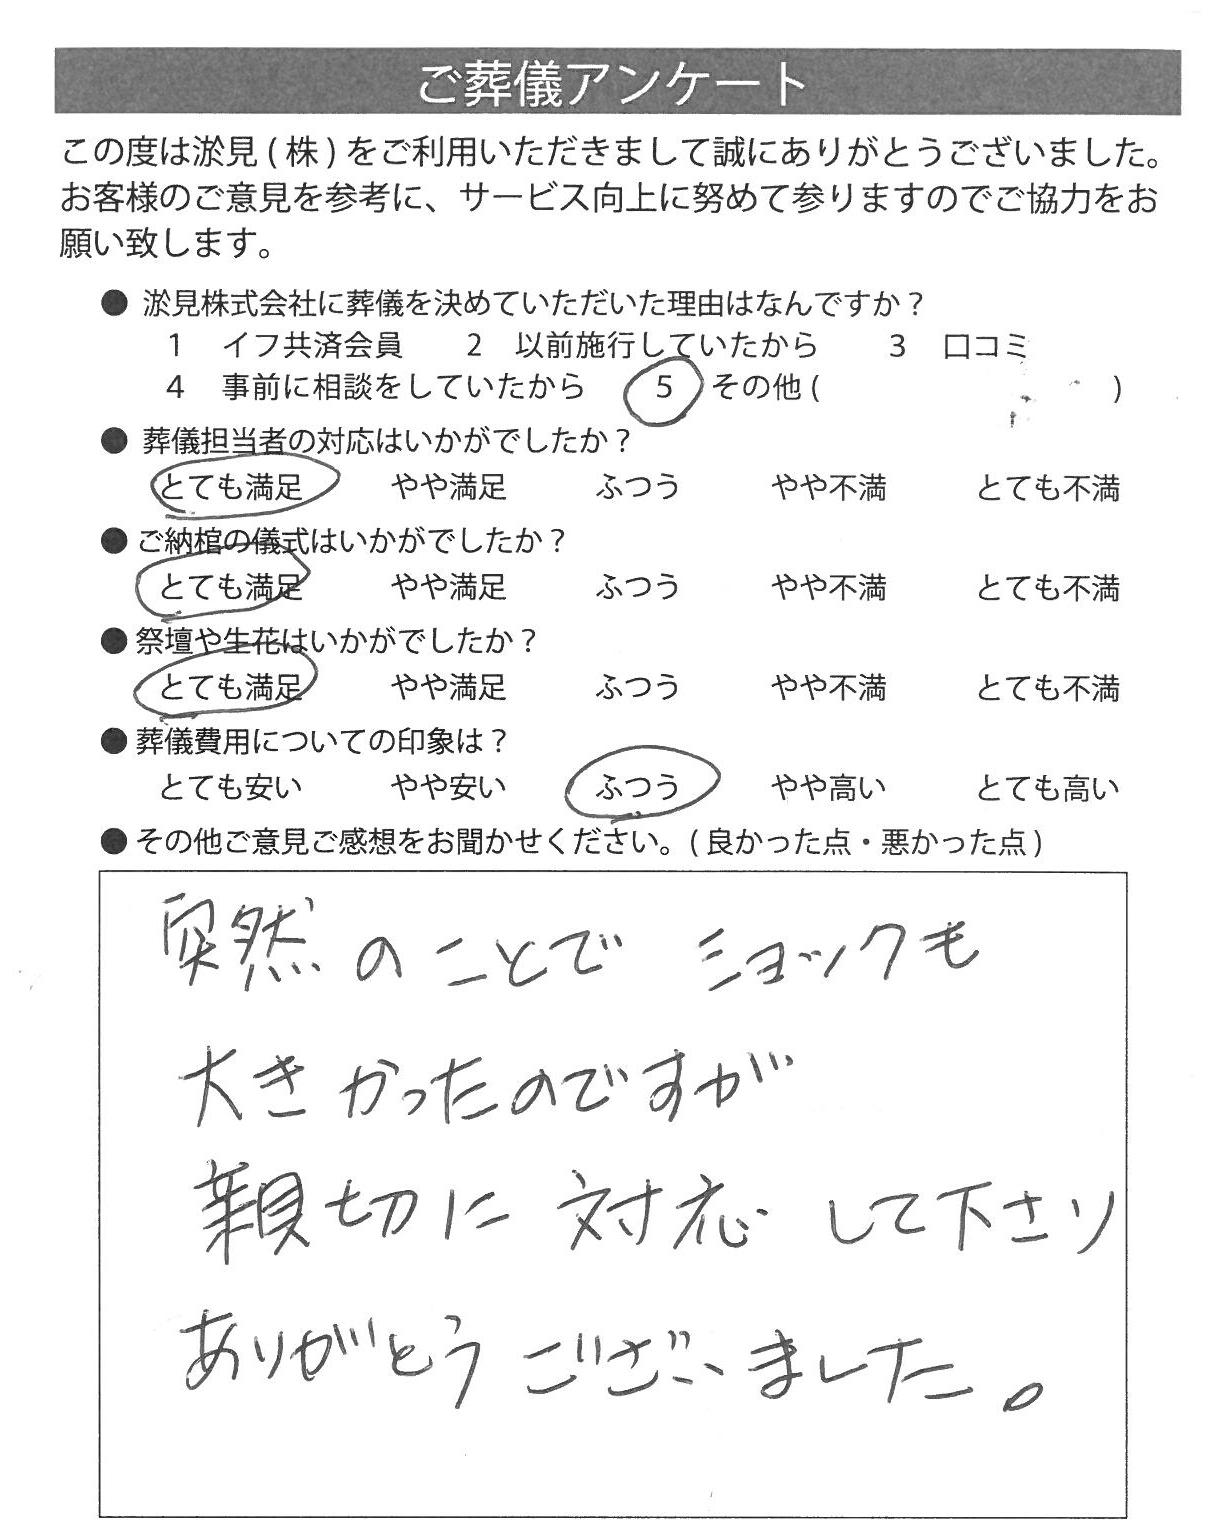 ご葬儀アンケート
この度は淤見(株)をご利用いただきまして誠にありがとうございました。
お客様のご意見を参考に、サービス向上に努めて参りますのでご協力をお
願い致します。
● 淤見株式会社に葬儀を決めていただいた理由はなんですか？
1 イフ共済会員 2 以前施行していたから 3 口コミ
4 事前に相談をしていたから 5 その他( )
● 葬儀担当者の対応はいかがでしたか？
とても満足 やや満足 ふつう やや不満 とても不満
● ご納棺の儀式はいかがでしたか？
とても満足 やや満足 ふつう やや不満 とても不満
● 祭壇や生花はいかがでしたか？
とても満足 やや満足 ふつう やや不満 とても不満
● 葬儀費用についての印象は？
とても安い やや安い ふつう やや高い とても高い
● その他ご意見ご感想をお聞かせください。(良かった点・悪かった点)
突然のことで ショックも
大きかったのですが
親切に 対応 して下さり
ありがとうございました。